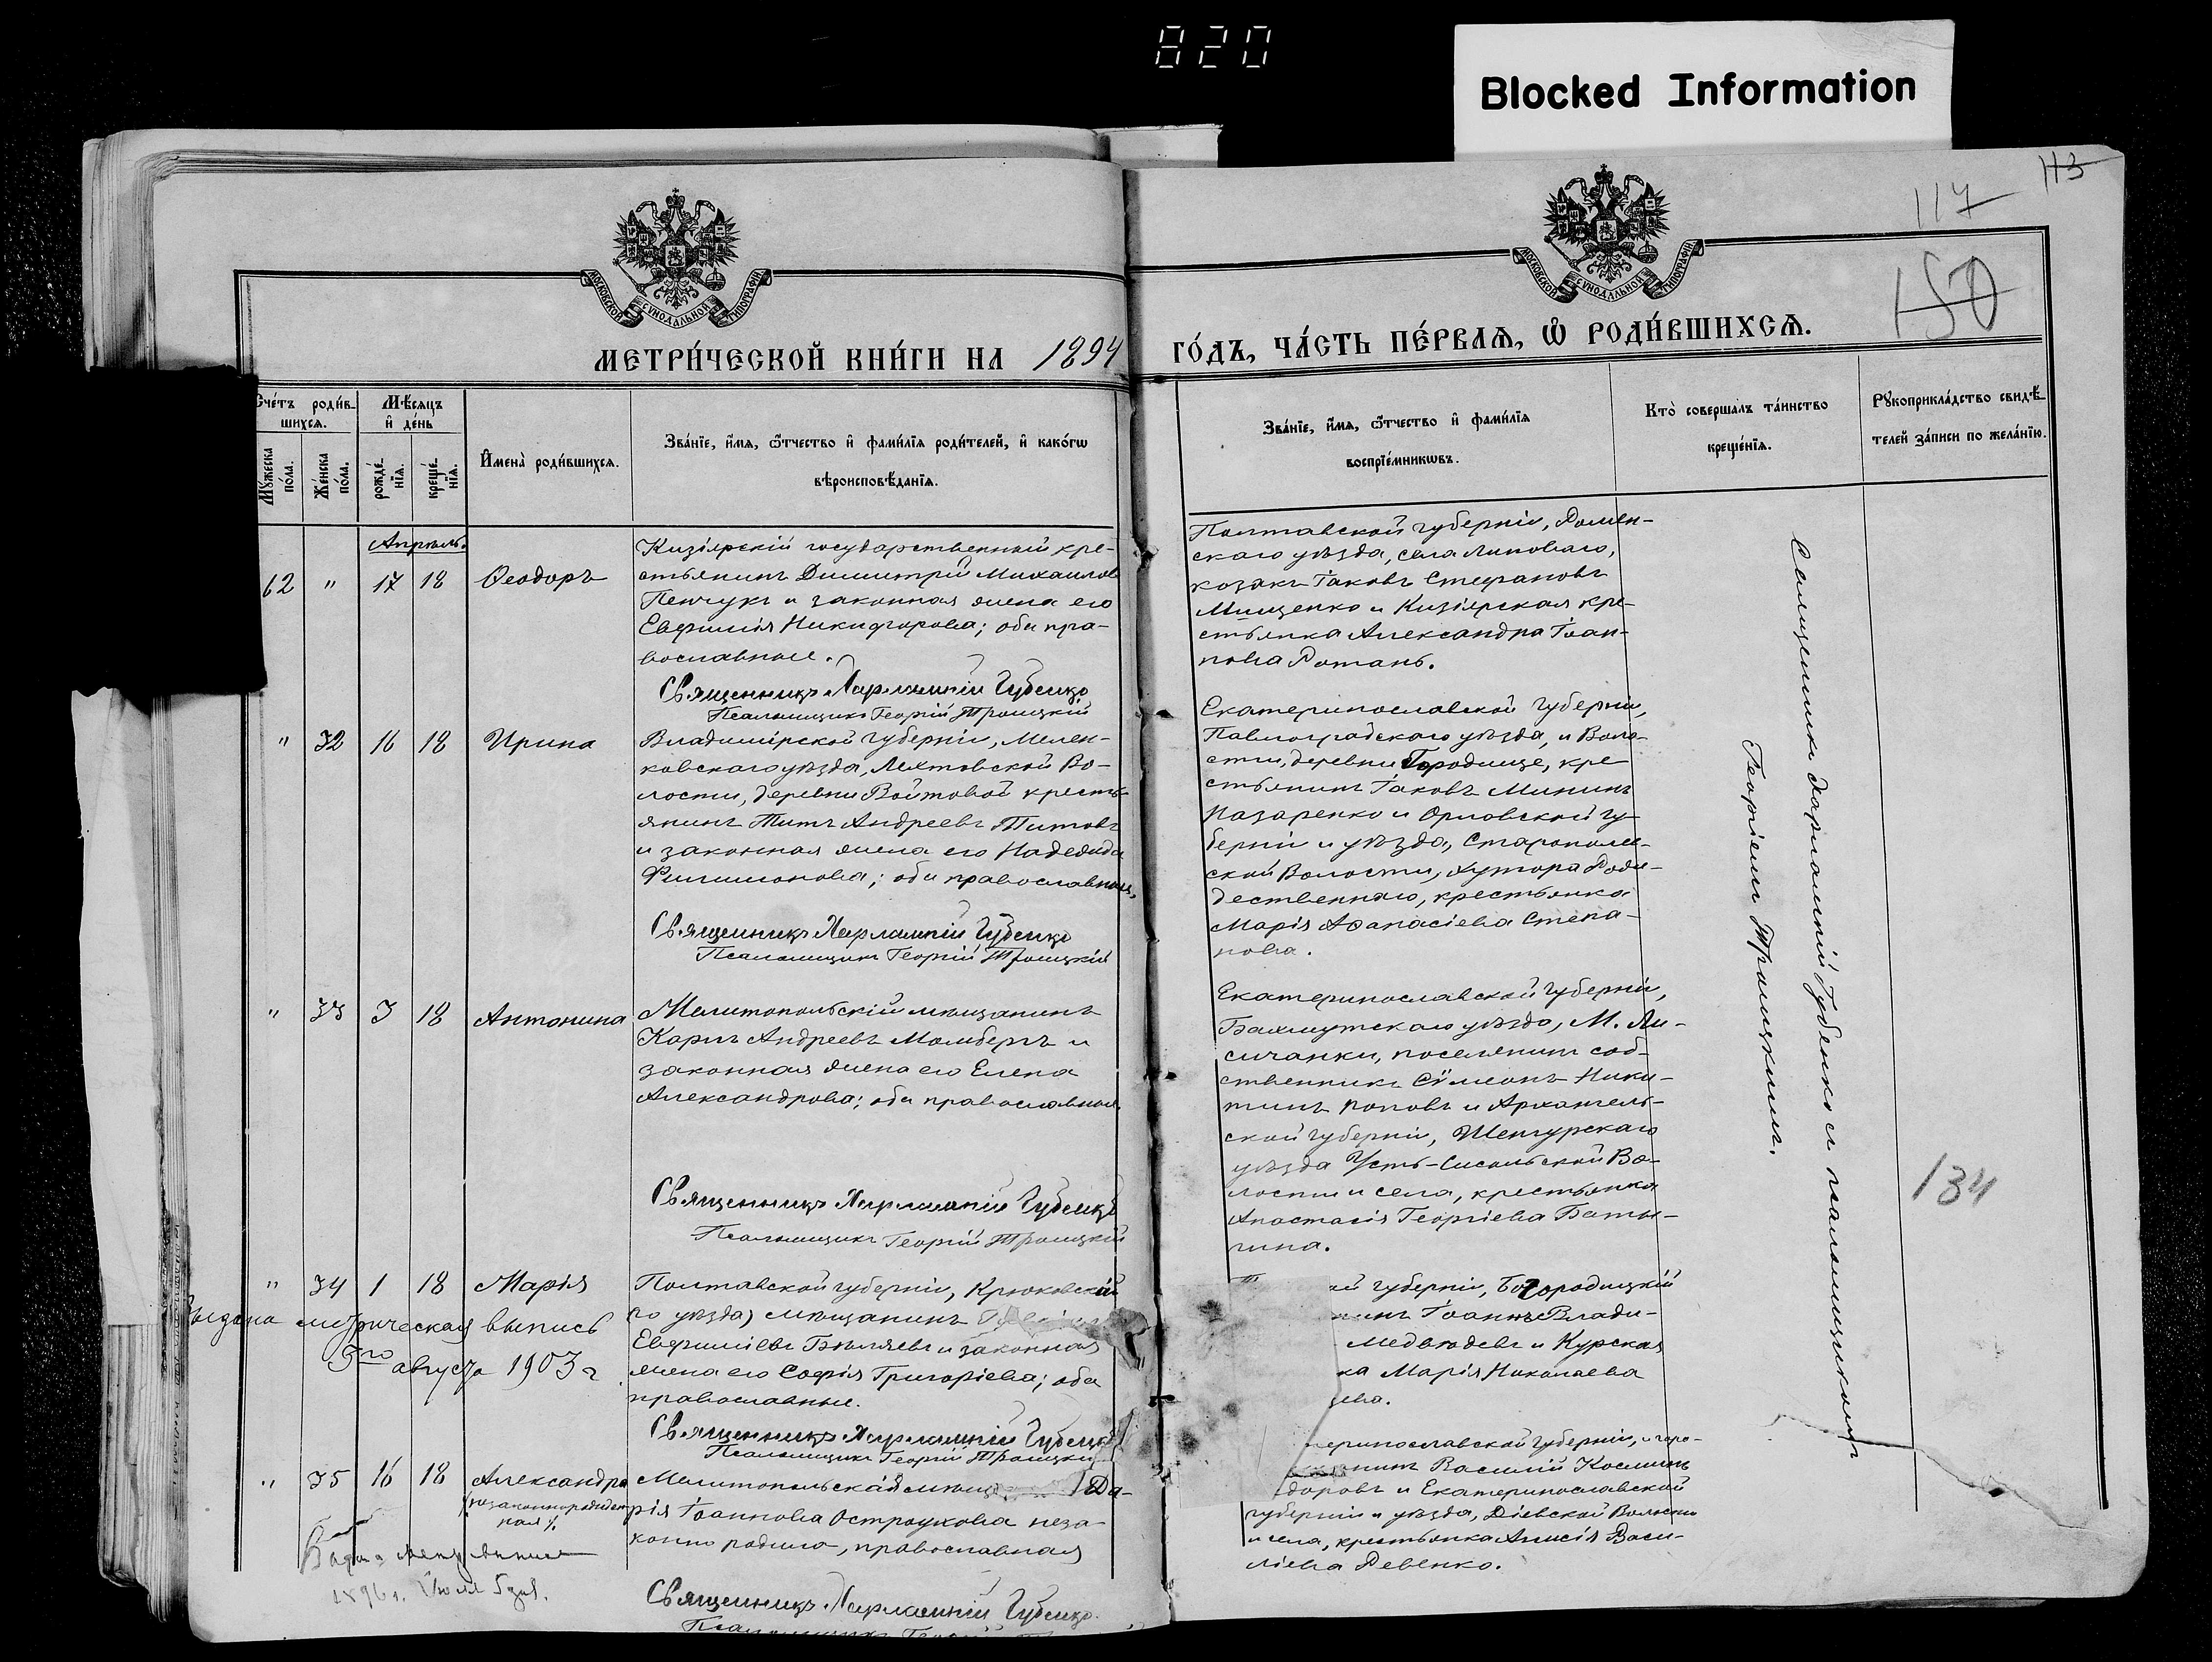 820
Blocked Information
113
117
150
МОСКОВСКОЙ СѴНОДАЛЬНОЙ ТИПОГРАФІИ
МОСКОВСКОЙ СѴНОДАЛЬНОЙ ТИПОГРАФІИ
МЕТРИ́ЧЕСКОЙ КНИ́ГИ НА 1894
ГО́ДЪ, ЧА́СТЬ ПЕ́РВАЯ, Ѡ РОДИ́ВШИХСЯ.
Счéтъ роди́в-
шихся.
Мꙋ́жеска по́ла.
Же́нска по́ла.
Мѣ́сяцъ и҆ де́нь
рожде́-нїя.
креще́-нїя.
И҆мена̀ роди́вшихся.
Зва́нїе, и҆́мя, ѻ҆́тчество и҆ фами́лїя роди́телей, и҆ како́гѡ
вѣроисповѣ́данїя.
Зва́нїе, и҆́мя, ѻ҆́тчество и҆ фами́лїя
воспрїе́мникѡвъ.
Кто̀ соверша́лъ та́инство
креще́нїя.
Рꙋкоприкла́дство свидѣ́-
телей за́писи по жела́нїю.
Апрѣль.
62 " 17 18 Ѳеодоръ
Кизіярскій государственный кре-
стьянинъ Димитрій Михаиловъ
Пенчукъ и законная жена его
Евфимія Никифорова; оба пра-
вославные.
Священникъ Харлампій Губенко
Псаломщикъ Георгій Троицкій
Полтавской губерніи, Ромен-
скаго уѣзда, села Липоваго,
козакъ Іаковъ Стефановъ
Мищенко и Кизіярская кре-
стьянка Александра Іоан-
нова Ротань.
" 32 16 18 Ирина
Владимірской губерніи, Мелен-
ковскаго уѣзда, Ляхтовской Во-
лости, деревни Войтовой кресть-
янинъ Титъ Андреевъ Титовъ
и законная жена его Надежда
Филимонова; оба православные.
Священникъ Харлампій Губенко
Псаломщикъ Георгій Троицкій
Екатеринославской губерніи,
Павлоградскаго уѣзда, и Воло-
сти, деревни Городище, кре-
стьянинъ Іаковъ Мининъ
Назаренко и Орловской гу-
берніи и уѣзда, Старополь-
ской Волости, хутора Рож-
дественнаго, крестьянка
Марія Аѳанасіева Степа-
нова.
" 33 3 18 Антонина
Мелитопольскій мѣщанинъ
Карпъ Андреевъ Мамбергъ и
законная жена его Елена
Александрова; оба православные.
Священникъ Харлампій Губенко
Псаломщикъ Георгій Троицкій
Екатеринославской губерніи,
Бахмутскаго уѣзда, М. Ли-
сичанки, поселянинъ соб-
ственникъ Сѵмеонъ Ники-
тинъ Поповъ и Архангель-
ской губерніи, Шенкурскаго
уѣзда Усть-Сисольской Во-
лости и села, крестьянка
Анастасія Георгіева Баты-
гина.
" 34 1 18 Марія
Полтавской губерніи, Крюковска-
го уѣзда, мѣщанинъ
Евфиміевъ Бѣляевъ и законная
жена его Софія Григоріева; оба
православные.
Священникъ Харлампій Губенко
Псаломщикъ Георгій Троицкій
Выдана метрическая выпись
5го августа 1903 г.
ой губерніи, Богородицкій
нинъ Іоаннъ Влади-
Медвѣдевъ и Курская
ка Марія Николаева
ева.
" 35 16 18 Александра
(незаконнорожден-
ная).
Мелитопольская мѣщ Да-
рія Іоаннова Остроухова неза-
конно родила, православная
Священникъ Харлампій Губенко
Псаломщикъ
1896 г. Іюля 5 дня.
еринославской губерніи, и горо-
нинъ Василій Косминъ
доровъ и Екатеринославской
губерніи и уѣзда, Діевской Волости
и села, крестьянка Анисія Васи-
ліева Ревенко.
Священникъ Харлампій Губенко и псаломщикомъ
Георгіемъ Троицкимъ.
134